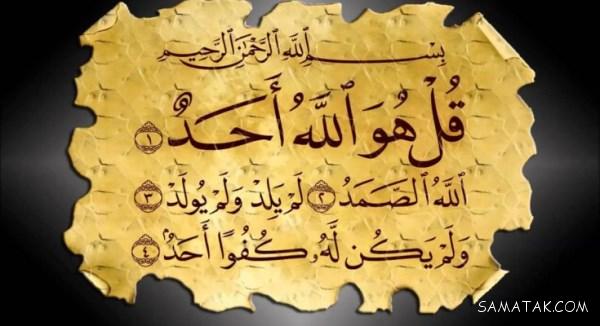 بِسْمِ ٱللَّهِ ٱلرَّحْمَٰنِ ٱلرَّحِيمِ
قُلْ هُوَ ٱللَّهُ أَحَدٌ ١
ٱللَّهُ ٱلصَّمَدُ ٢ لَمْ يَلِدْ وَلَمْ يُولَدْ ٣
وَلَمْ يَكُن لَّهُۥ كُفُوًا أَحَدٌۢ ٤
SAMATAK.COM